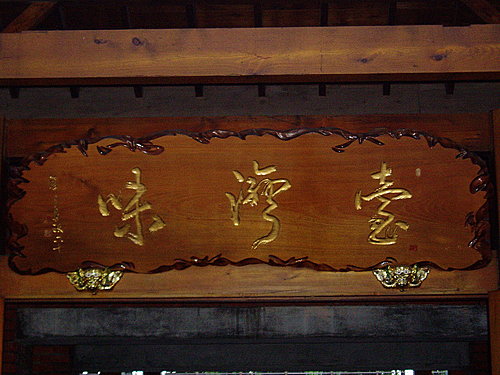 臺灣味